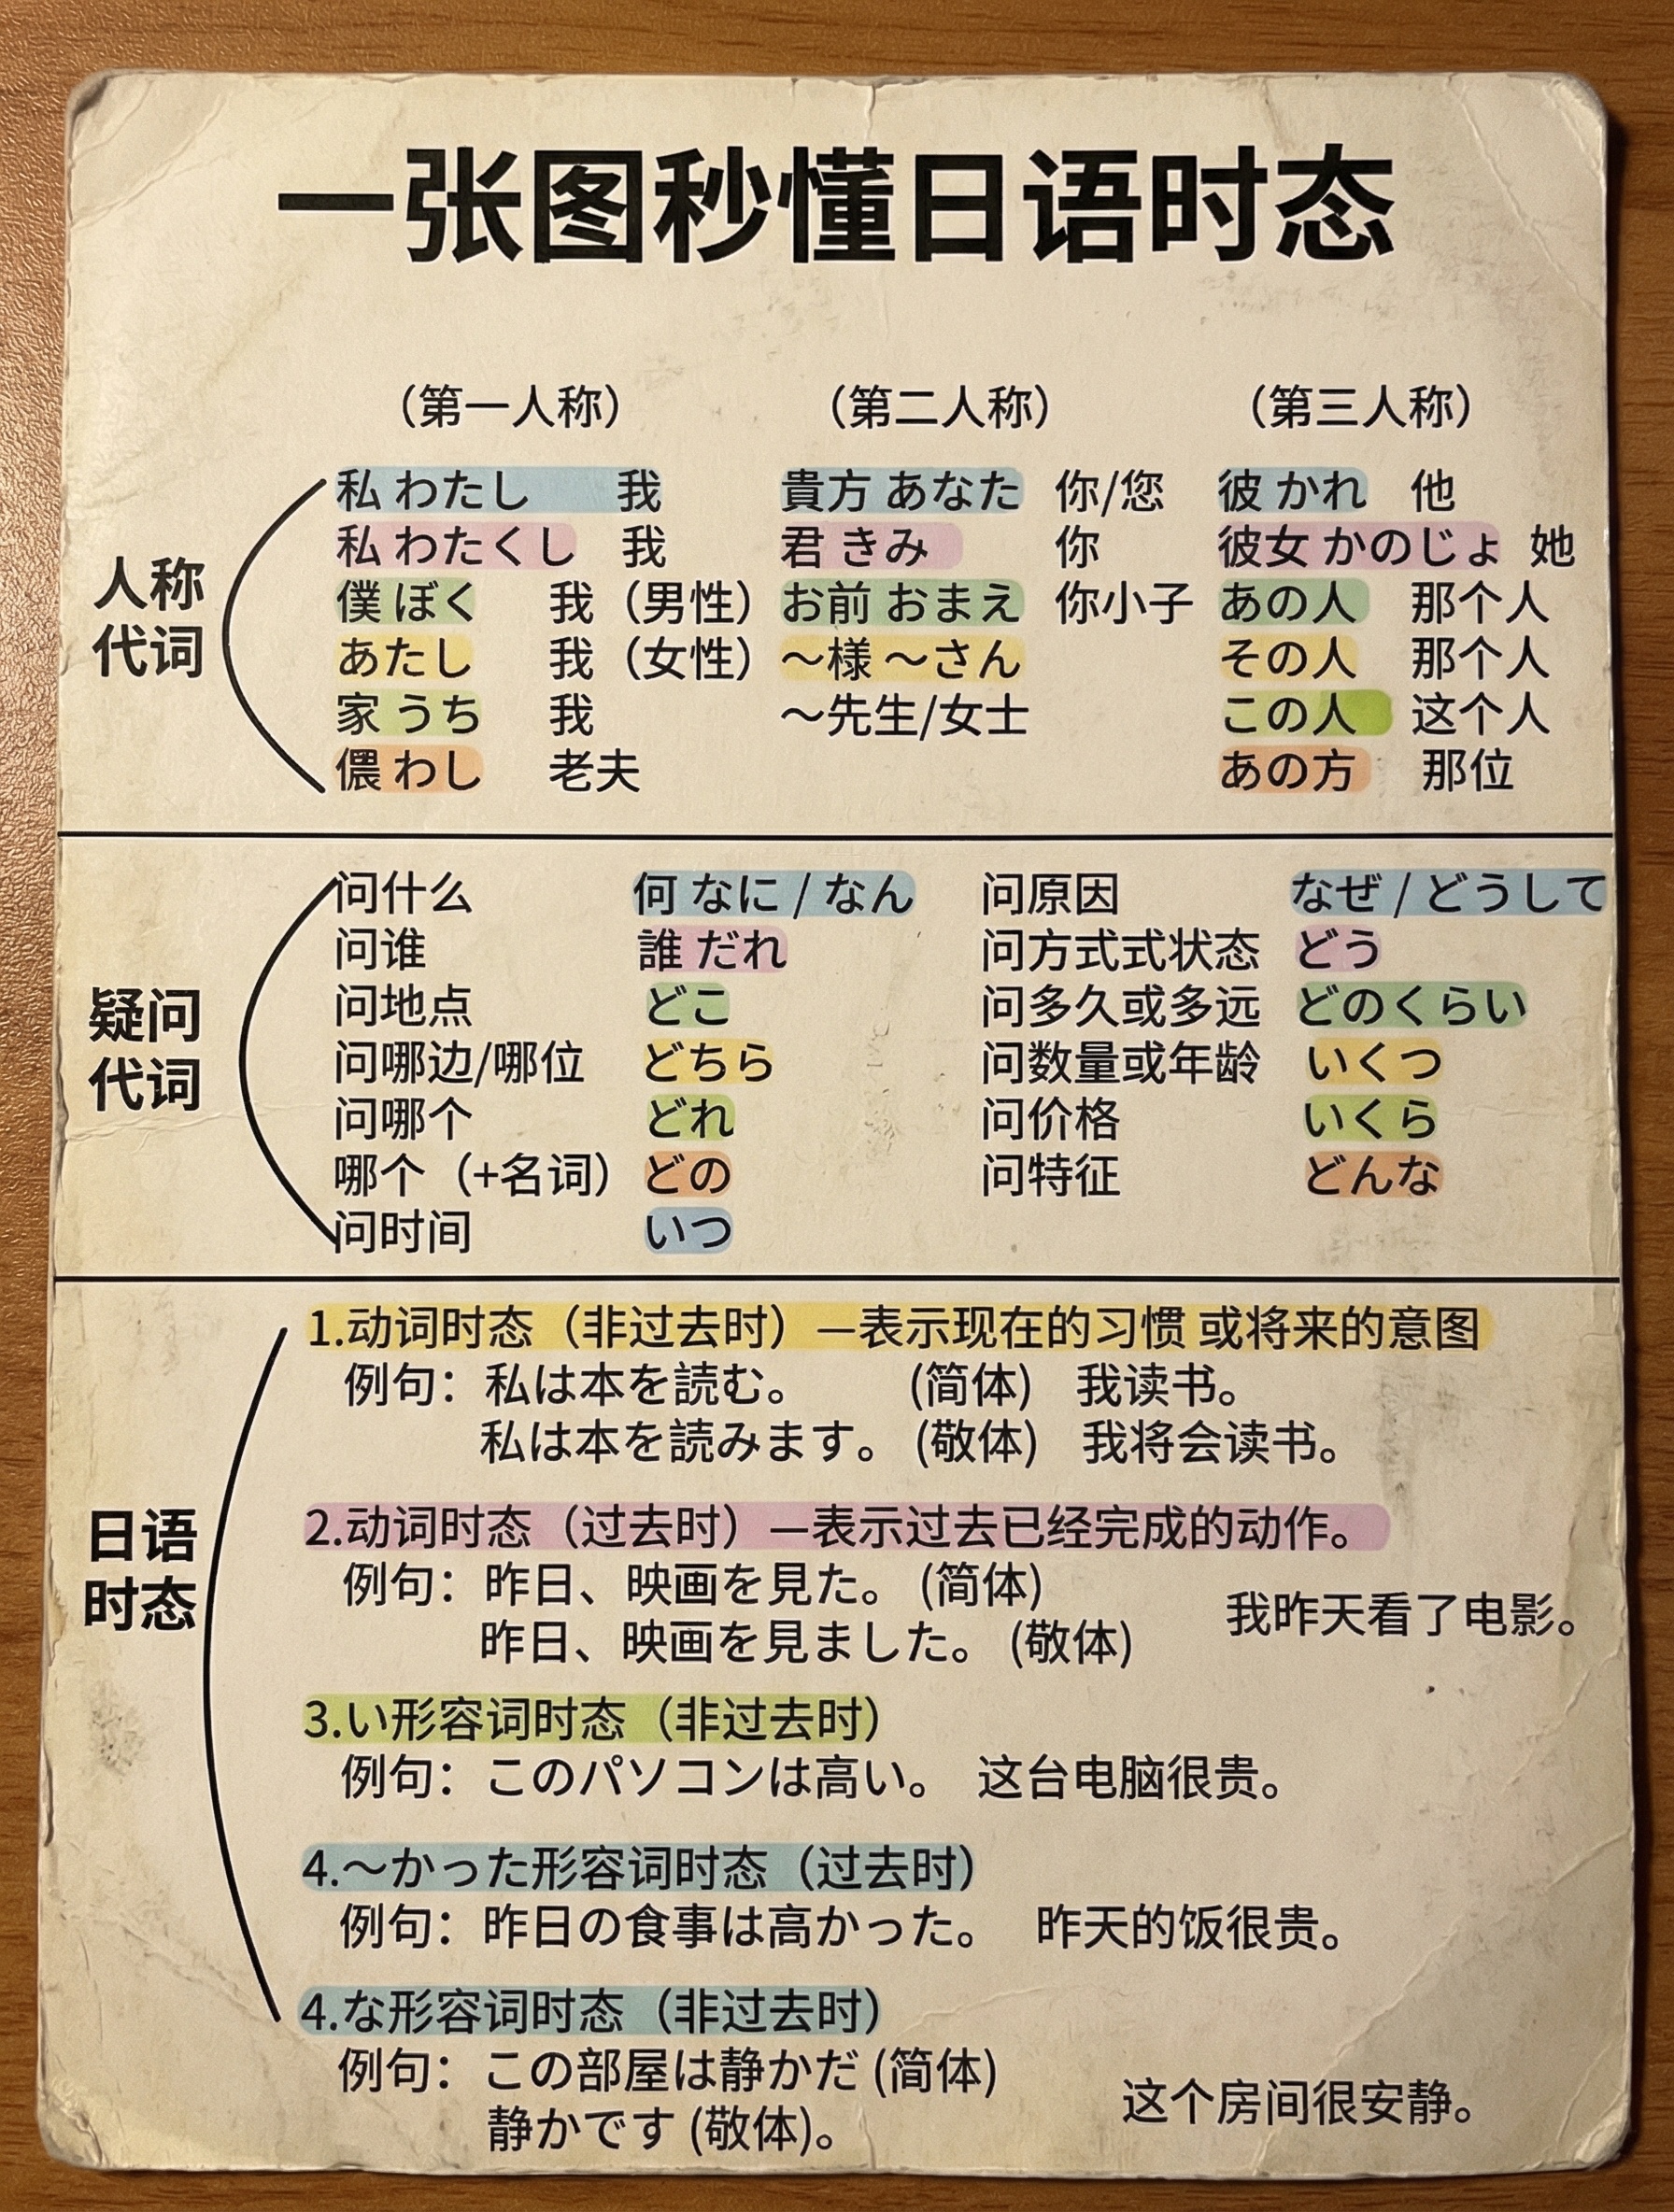 一张图秒懂日语时态
（第一人称） （第二人称） （第三人称）
人称代词
私 わたし 我 貴方 あなた 你/您 彼 かれ 他
私 わたくし 我 君 きみ 你 彼女 かのじょ 她
僕 ぼく 我（男性） お前 おまえ 你小子 あの人 那个人
あたし 我（女性） ～様 ～さん その人 那个人
家 うち 我 ～先生/女士 この人 这个人
儂 わし 老夫 あの方 那位
疑问代词
问什么 何 なに / なん 问原因 なぜ / どうして
问谁 誰 だれ 问方式式状态 どう
问地点 どこ 问多久或多远 どのくらい
问哪边/哪位 どちら 问数量或年龄 いくつ
问哪个 どれ 问价格 いくら
哪个（+名词） どの 问特征 どんな
问时间 いつ
日语时态
1.动词时态（非过去时）—表示现在的习惯 或将来的意图
例句：私は本を読む。 (简体) 我读书。
私は本を読みます。 (敬体) 我将会读书。
2.动词时态（过去时）—表示过去已经完成的动作。
例句：昨日、映画を見た。 (简体)
昨日、映画を見ました。 (敬体)
我昨天看了电影。
3.い形容词时态（非过去时）
例句：このパソコンは高い。 这台电脑很贵。
4.～かった形容词时态（过去时）
例句：昨日の食事は高かった。 昨天的饭很贵。
4.な形容词时态（非过去时）
例句：この部屋は静かだ (简体)
静かです (敬体)。
这个房间很安静。